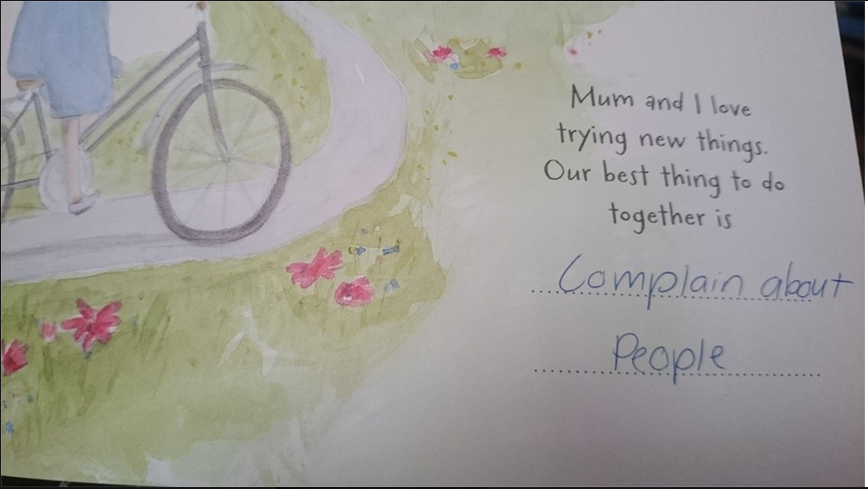 Mum and I love
trying new things.
Our best thing to do
together is
Complain about
People